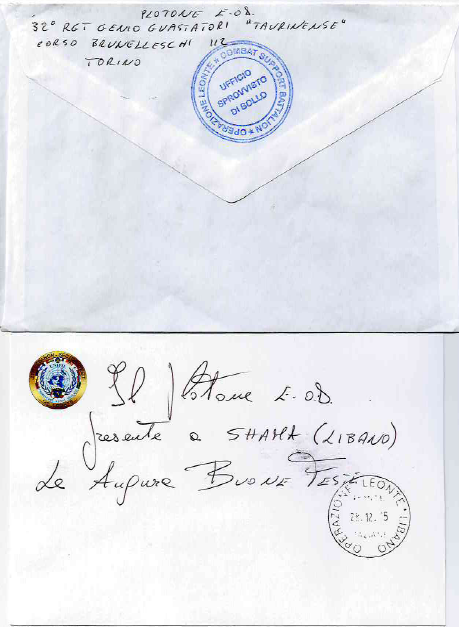 PLOTONE E.O.D.
32° RGT GENIO GUASTATORI "TAURINENSE"
CORSO BRUNELLESCHI 112
TORINO
OPERAZIONE LEONTE ★ COMBAT SUPPORT BATTALION ★
UFFICIO
SPROVVISTO
DI BOLLO
Il Plotone E.O.D.
presente a SHAMA (LIBANO)
Le Augura BUONE FESTE
OPERAZIONE LEONTE • LIBANO •
28.12.